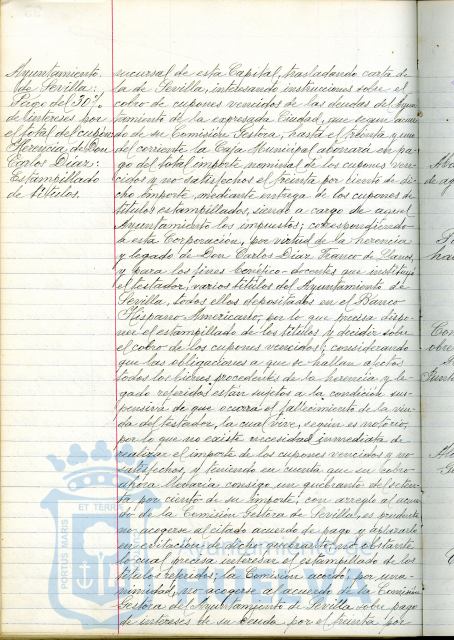 Ayuntamiento
de Sevilla:
Pago del 30%
de intereses por
el total del cupón
Herencia de Don
Carlos Díaz:
Estampillado
de títulos.
sucursal de esta Capital, trasladando carta de
la de Sevilla, interesando instrucciones sobre el
cobro de cupones vencidos de las deudas del Ayun-
tamiento de la expresada Ciudad, que según acuer-
do de su Comisión Gestora, hasta el treinta y uno
del corriente la Caja Municipal abonará en pa-
go del total importe nominal de los cupones ven-
cidos y no satisfechos el treinta por ciento de di-
cho importe, mediante entrega de los cupones de
títulos estampillados, siendo a cargo de aquel
Ayuntamiento los impuestos; correspondiendo
a esta Corporación, por virtud de la herencia
y legado de Don Carlos Díaz Franco de Llanos,
y para los fines benéfico-docentes que instituyó
el testador, varios títulos del Ayuntamiento de
Sevilla, todos ellos depositados en el Banco
Hispano Americano, por lo que precisa dispo-
ner el estampillado de los títulos y decidir sobre
el cobro de los cupones vencidos; considerando
que las obligaciones a que se hallan afectos
todos los bienes procedentes de la herencia y le-
gado referidos están sujetos a la condición sus-
pensiva de que ocurra el fallecimiento de la viu-
da del testador, la cual vive, según es notorio,
por lo que no existe necesidad inmediata de
realizar el importe de los cupones vencidos y no
satisfechos, y teniendo en cuenta que su cobro
ahora llevaría consigo un quebranto del seten-
ta por ciento de su importe, con arreglo al acuer-
do de la Comisión Gestora de Sevilla, es prudente
no acogerse al citado acuerdo de pago y aplazarlo
en evitación de dicho quebranto, no obstante
lo cual precisa interesar el estampillado de los
títulos referidos; la Comisión acordó, por una-
nimidad, no acogerse al acuerdo de la Comisión
Gestora del Ayuntamiento de Sevilla sobre pago
de intereses de su deuda por el treinta por
PORTUS MARIS ET TERRE
Ayuntamiento de